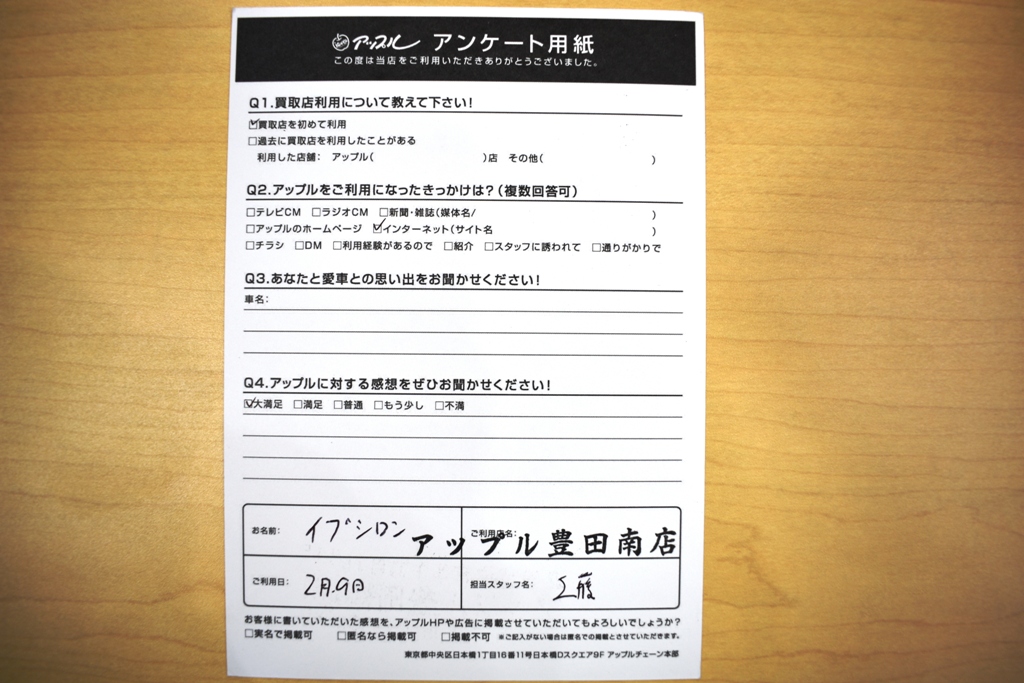 アップル アンケート用紙
この度は当店をご利用いただきありがとうございました。
Q1.買取店利用について教えて下さい!
☑買取店を初めて利用
□過去に買取店を利用したことがある
利用した店舗： アップル( )店 その他( )
Q2.アップルをご利用になったきっかけは?(複数回答可)
□テレビCM □ラジオCM □新聞・雑誌(媒体名/ )
□アップルのホームページ ☑インターネット(サイト名 )
□チラシ □DM □利用経験があるので □紹介 □スタッフに誘われて □通りがかりで
Q3.あなたと愛車との思い出をお聞かせください!
車名：
Q4.アップルに対する感想をぜひお聞かせください!
☑大満足 □満足 □普通 □もう少し □不満
お名前： イプシロン ご利用店名： アップル豊田南店
ご利用日： 2月.9日 担当スタッフ名： 工藤
お客様に書いていただいた感想を、アップルHPや広告に掲載させていただいてもよろしいでしょうか?
□実名で掲載可 □匿名なら掲載可 □掲載不可 ※ご記入がない場合は匿名での掲載とさせていただきます。
東京都中央区日本橋1丁目16番11号日本橋Dスクエア9F アップルチェーン本部